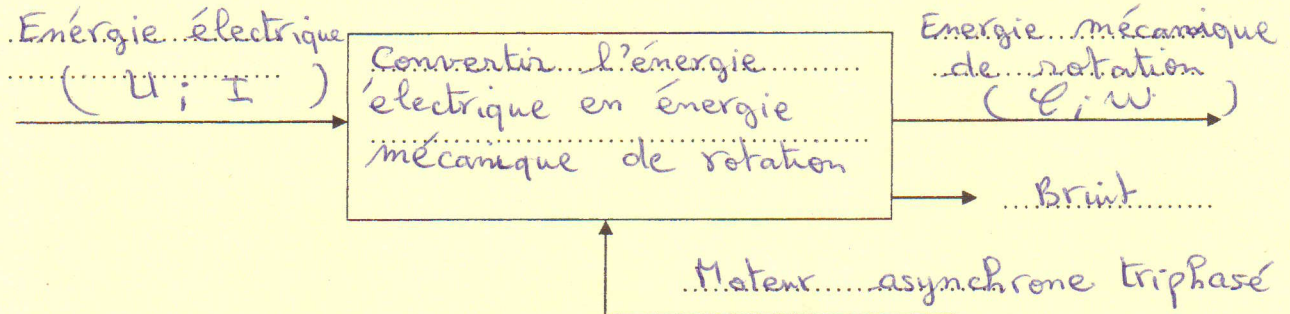 Enérgie électrique
( U ; I )
Convertir l'énergie
électrique en énergie
mécanique de rotation
Energie mécanique
de rotation
( C ; w )
Bruit
Moteur asynchrone triphasé